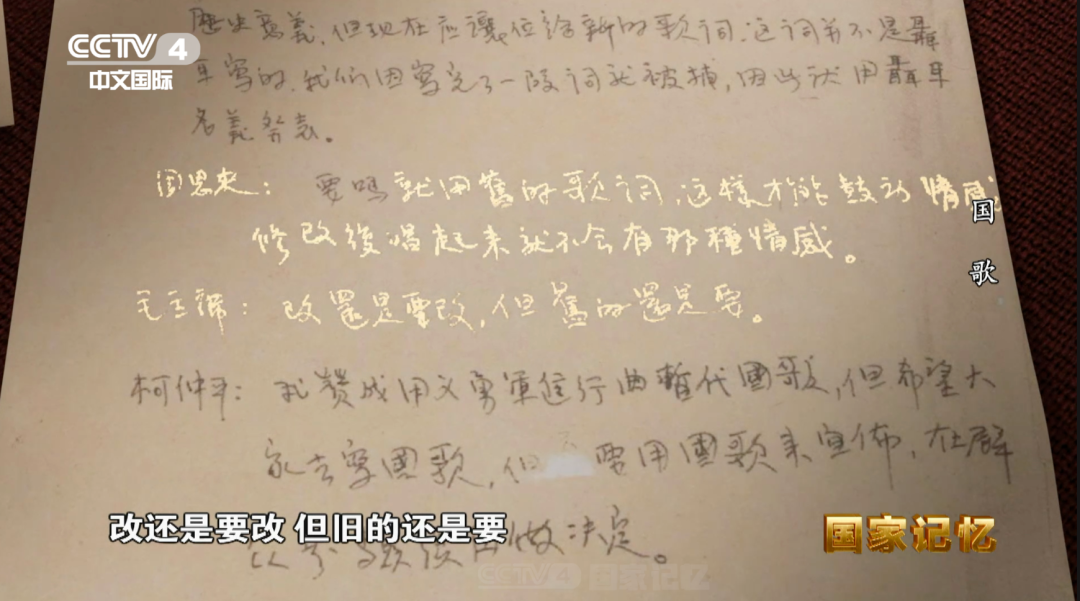 CCTV 4
中文国际
歷史意義,但现在应讓位给新的歌词.这词并不是聶
耳寫的,我们因寫完了一段词就被捕,因此伏用聶耳
名義发表。
周恩来:要嗎就用舊的歌詞,这樣才能鼓动情感,
修改後唱起来就不会有那種情感。
毛主席:改還是要改,但舊的還是要。
柯仲平:我赞成用义勇軍進行曲暫代國歌,但希望大
家去寫國歌,但 要用國歌来宣佈,在群
决定。
国歌
改还是要改 但旧的还是要
国家记忆
CCTV 4 国家记忆